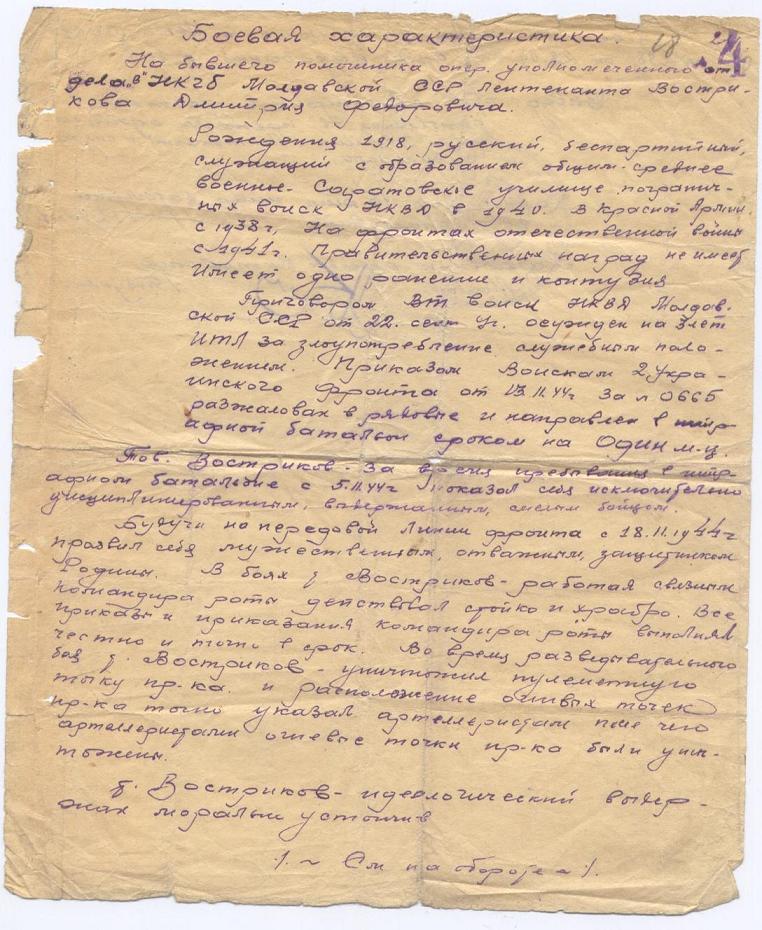 Боевая характеристика.
18 24
На бывшего помошника опер. уполномеченного от
дела "в" НКГБ Молдавской ССР Лентенанта Востри-
кова Дмитрия Федоровича.
Рождения 1918, русский, беспартийный,
служащий с образованием общим-среднее
военное - Саратовское училище погранич-
ных войск НКВД в 1940. В Красной Армии
с 1938г, На фронтах отечественной войны
с 1941г. Правительственных наград не имеет
Имеет одно ранение и контузия
Приговором ВТ войск НКВД Молдав-
ской ССР от 22. сент осужден на 3 лет
ИТЛ за злоупотребление служебным поло-
жением. Приказом Войскам 2 Укра-
инского Фронта от 13.11.44г За № 0665
разжалован в рядовые и направлен в штр-
афной батальон сроком на Один м-ц.
Тов. Востриков - За время пребывания в штр-
афном батальоне с 5.11.44г показал себя исключительно
дисциплинированным, выдержанным, смелым бойцом.
Будучи на передовой линии фронта с 18.11.1944г
проявил себя мужественным, отважным, защитником
Родины. В боях т Востриков - работая связным
командира роты действовал стойко и храбро. Все
приказы и приказания командира роты выполнял
честно и точно в срок. Во время разведывательного
боя т. Востриков - уничтожил пулеметную
тыку пр-ка. и расположение огневых точек
пр-ка точно указал артеллеристам после чего
артеллеристами огневые точки пр-ка были унич-
тожены.
т. Востриков - идеологический выдер-
жан морально устойчив
/. ~ См на обороте ~ /.